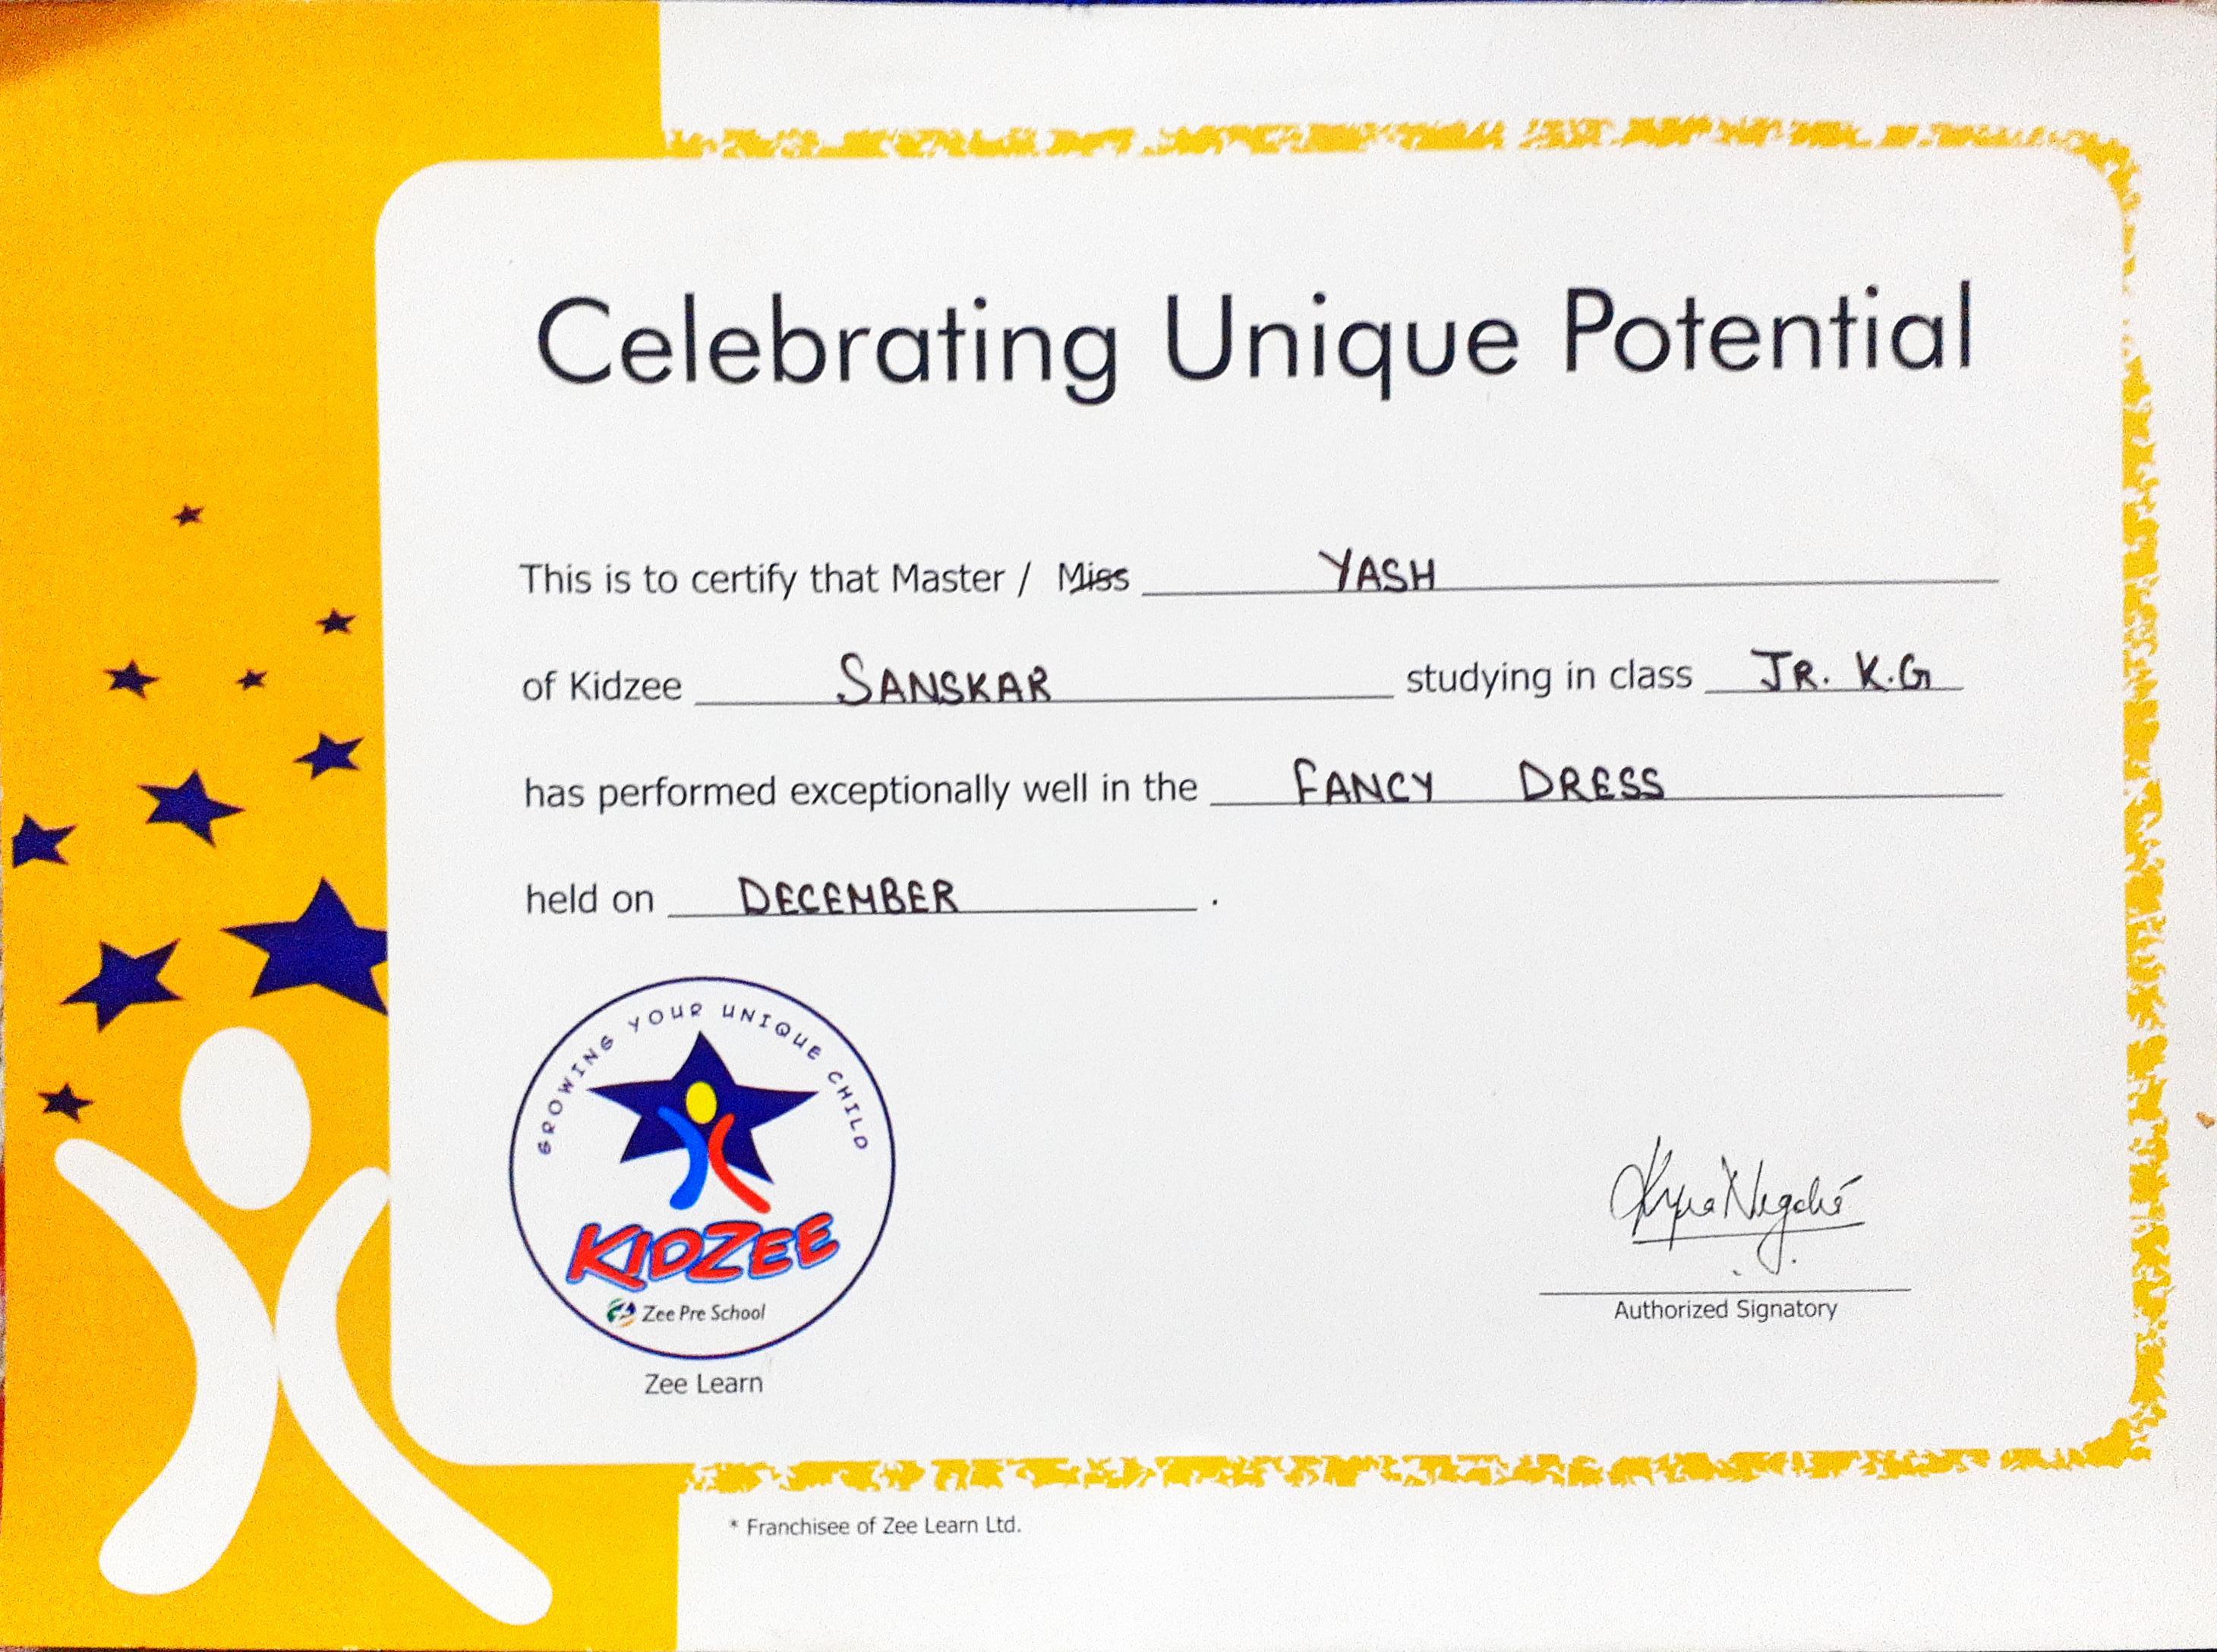 Celebrating Unique Potential
This is to certify that Master / Miss YASH
of Kidzee SANSKAR studying in class JR. K.G
has performed exceptionally well in the FANCY DRESS
held on DECEMBER .
GROWING YOUR UNIQUE CHILD
KIDZEE
Zee Pre School
Zee Learn
Authorized Signatory
* Franchisee of Zee Learn Ltd.